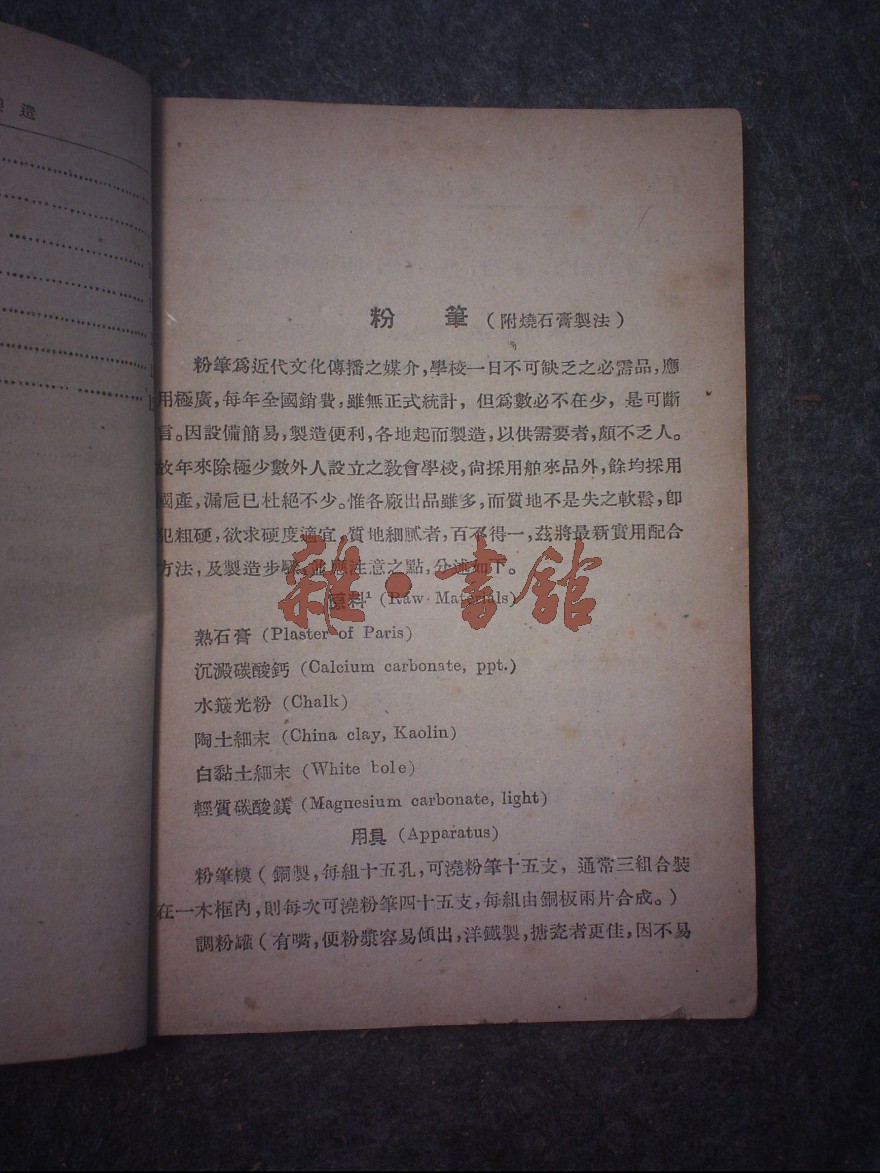 選
粉筆(附燒石膏製法)
粉筆爲近代文化傳播之媒介,學校一日不可缺乏之必需品,應
用極廣,每年全國銷費,雖無正式統計,但爲數必不在少,是可斷
言。因設備簡易,製造便利,各地起而製造,以供需要者,頗不乏人。
故年來除極少數外人設立之敎會學校,尙採用舶來品外,餘均採用
國產,漏巵已杜絕不少。惟各廠出品雖多,而質地不是失之軟鬆,卽
犯粗硬,欲求硬度適宜,質地細膩者,百不得一,茲將最新實用配合
方法,及製造步驟,並應注意之點,分述如下。
雜·書館
原料¹ (Raw Materials)
熟石膏 (Plaster of Paris)
沉澱碳酸鈣 (Calcium carbonate, ppt.)
水簸光粉 (Chalk)
陶土細末 (China clay, Kaolin)
白黏土細末 (White bole)
輕質碳酸鎂 (Magnesium carbonate, light)
用具 (Apparatus)
粉筆模(銅製,每組十五孔,可澆粉筆十五支,通常三組合裝
在一木框內,則每次可澆粉筆四十五支,每組由銅板兩片合成。)
調粉罐(有嘴,便粉漿容易傾出,洋鐵製,搪瓷者更佳,因不易